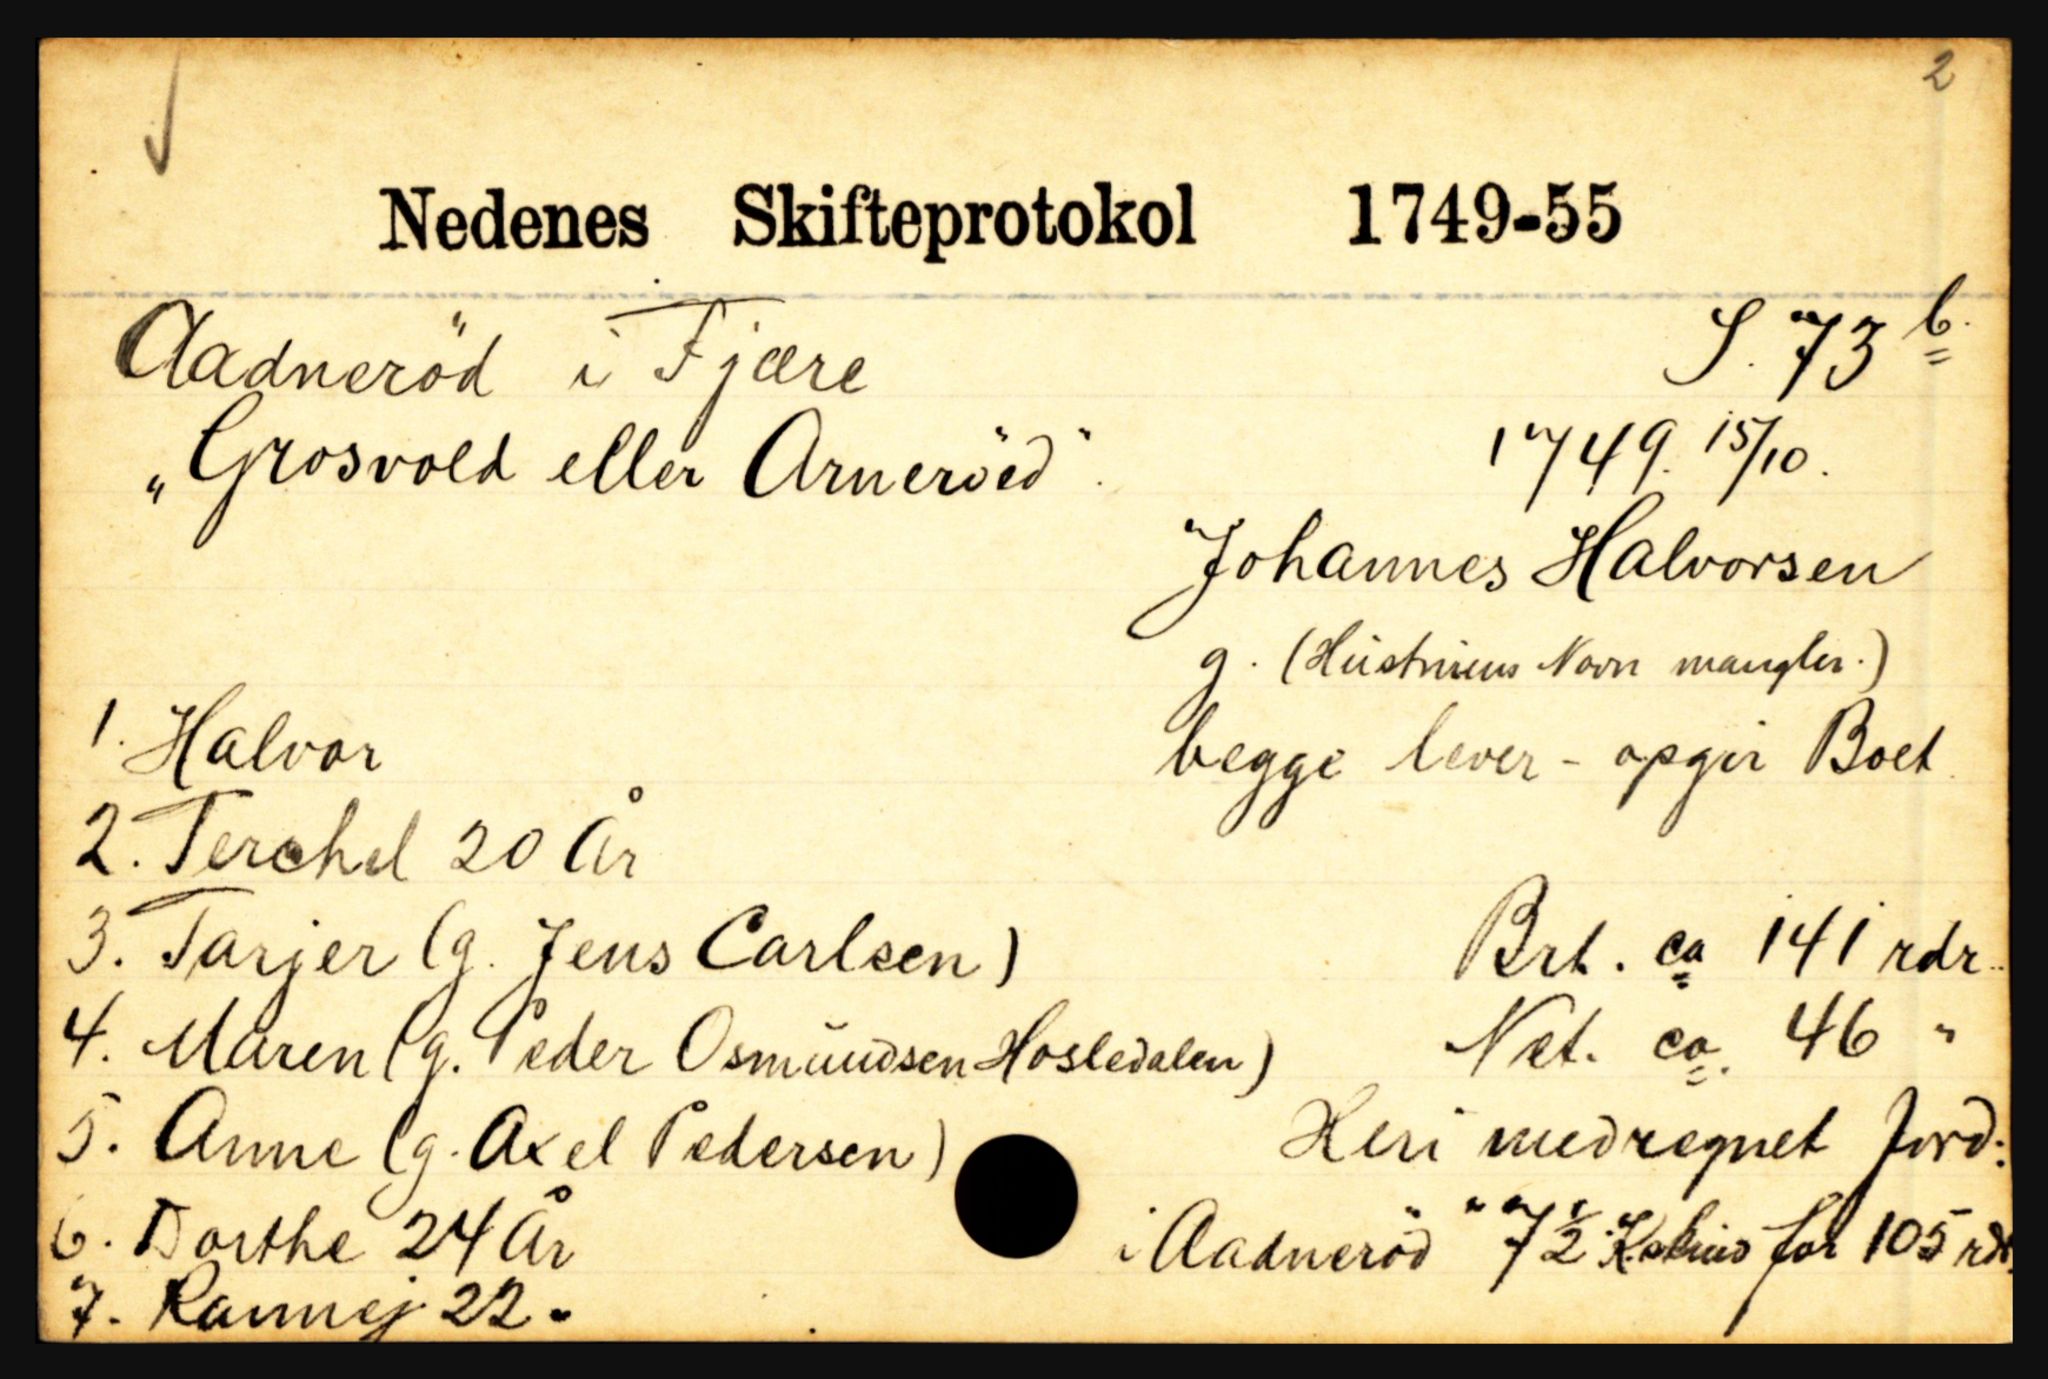 2
Nedenes Skifteprotokol 1749-55
Aadneröd i Fjære S. 73 b.
„Grosvold eller Arneröed". 1749. 15/10.
Johannes Halvorsen
g. (Hustruens Navn mangler.)
1. Halvor begge lever - opgir Boet
2. Terchel 20 År
3. Tarjer (g. Jens Carlsen) Brt. ca 141 rdr.
4. Maren (g. Peder Osmundsen Hosledalen) Net. ca. 46 "
5. Anne (g. Axel Pedersen) Heri medregnet Jord:
6. Dorthe 24 År i Aadneröd " 7 1/2 for 105 rdr.
7. Rannej 22 "